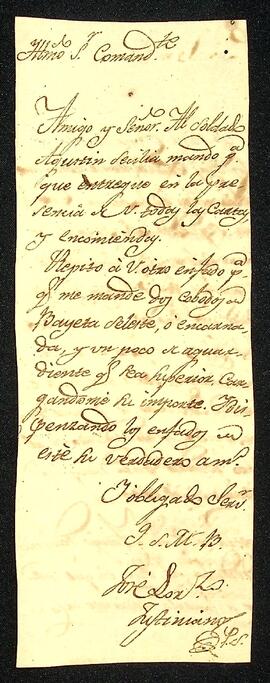 Illmo Sr Comandte
Amigo y Señor. Al soldado
Agustin Sicilia mando pa
que entregue en la pre
sencia de V. todas las Cartas,
y encomiendas.
Repito á V. otro enfado pa
qe me mande dos cobdos de
Bayeta celeste, ó encarna
da, y un poco de aguar
diente qe sea superior, Car
gandome su importe. Dis
pensando los enfados de
este su verdadero amo
I obligado Servr
Q. S. M. B.
José Lor
Justiniano